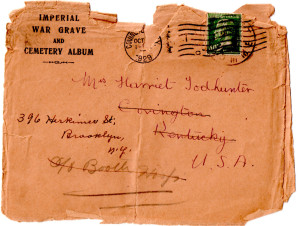 IMPERIAL
WAR GRAVE
AND
CEMETERY ALBUM
OCT
Harriet Todhunter
Covington
Kentucky
U.S.A.
396 Herkimer St,
Brooklyn,
N.Y.